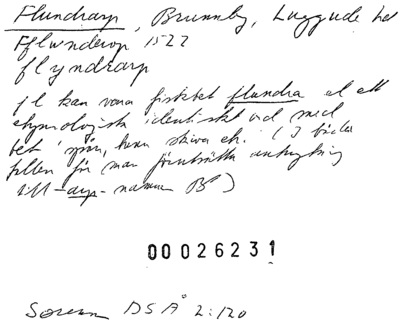 Flundrarp, Brunnby, Luggude hd
Fflwnderop 1522
flyndrarp
fl kan vara fisktbet flundra el ett
etymologiskt identiskt ord med
bet
fallen för man förutsätta anknytning
till -arp- namn B)
00026231
Sørensen DSÅ 2:120